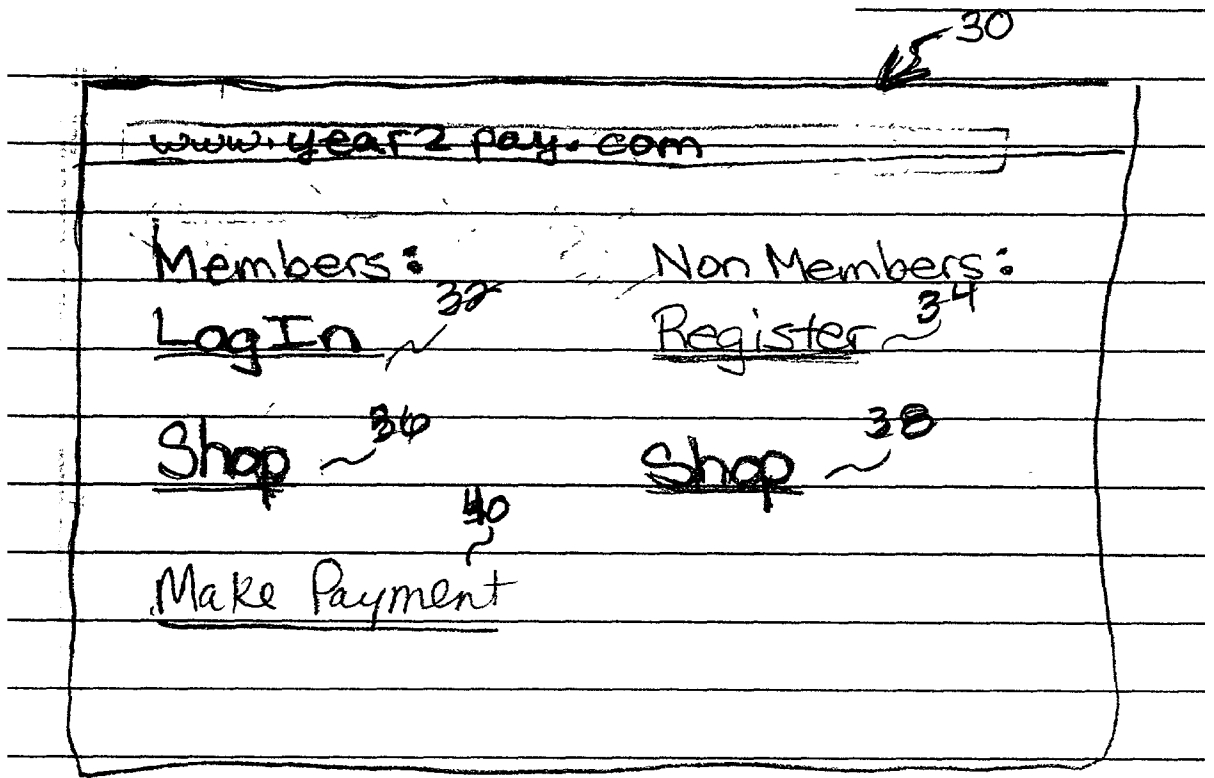 30
www.year2pay.com
Members: Non Members:
32 34
LogIn Register
36 38
Shop Shop
40
Make Payment